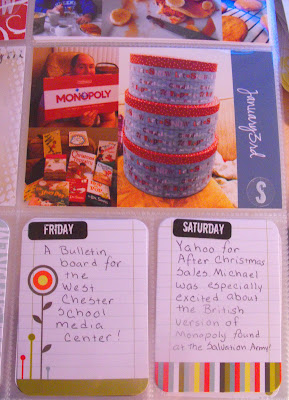 MONOPOLY
January 3rd
S
FRIDAY
A Bulletin
board for
the
West
Chester
School
media
Center!
SATURDAY
Yahoo for
After Christmas
Sales. Michael
was especially
excited about
the British
version of
Monopoly found
at the Salvation Army!